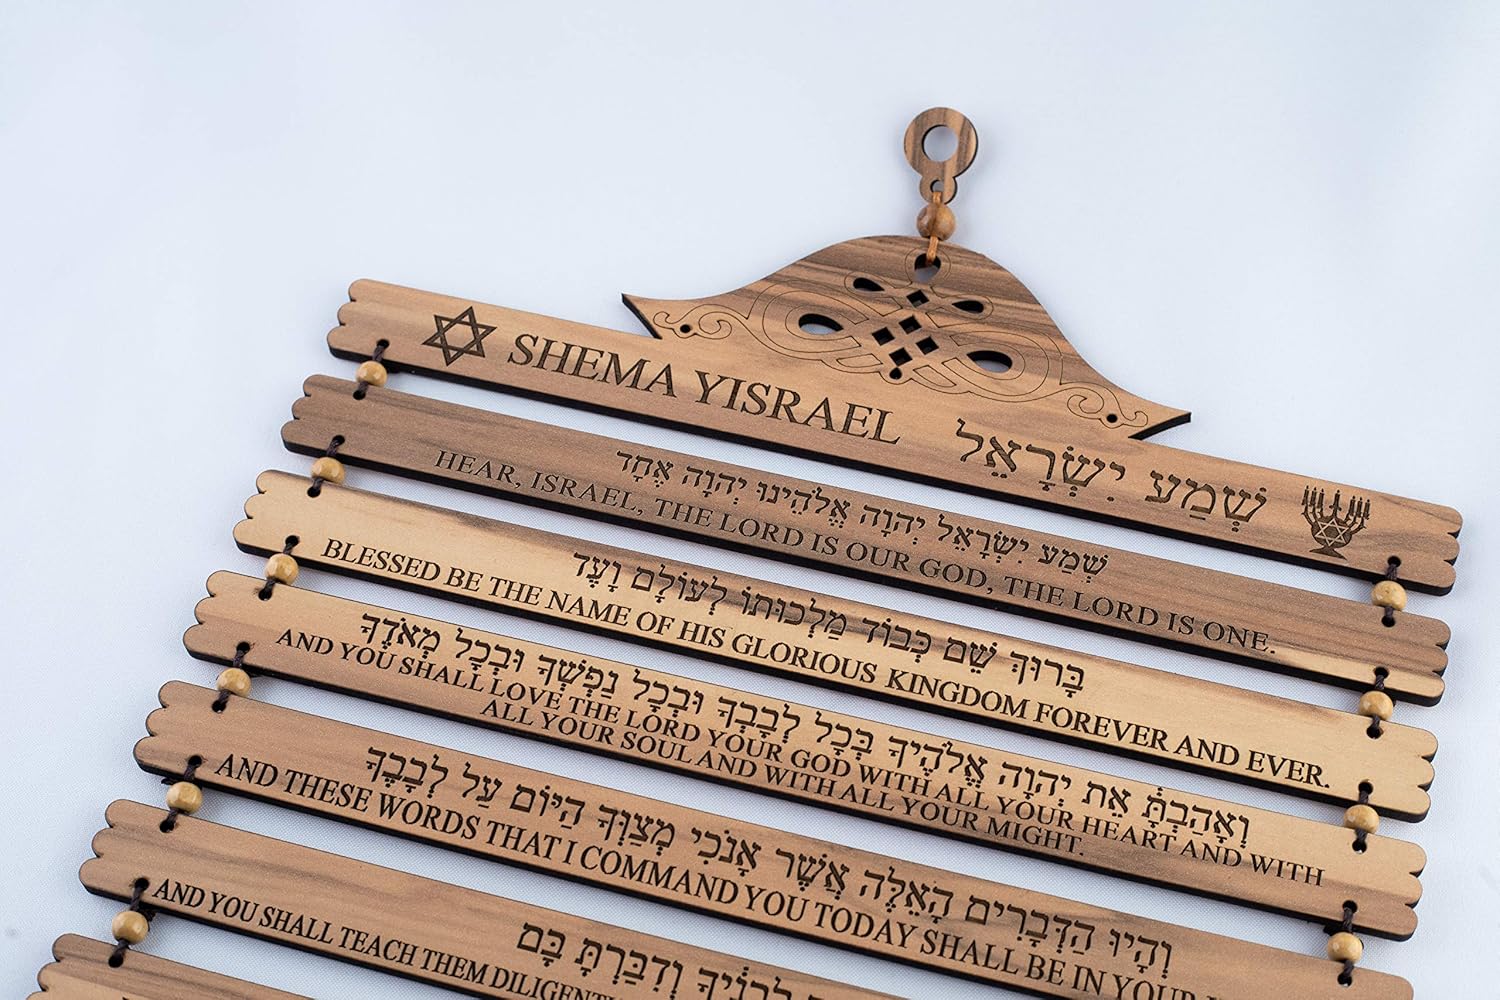 SHEMA YISRAEL שְׁמַע יִשְׂרָאֵל
שְׁמַע יִשְׂרָאֵל יְהוָה אֱלֹהֵינוּ יְהוָה אֶחָד
HEAR, ISRAEL, THE LORD IS OUR GOD, THE LORD IS ONE.
בָּרוּךְ שֵׁם כְּבוֹד מַלְכוּתוֹ לְעוֹלָם וָעֶד
BLESSED BE THE NAME OF HIS GLORIOUS KINGDOM FOREVER AND EVER.
וְאָהַבְתָּ אֵת יְהוָה אֱלֹהֶיךָ בְּכָל לְבָבְךָ וּבְכָל נַפְשְׁךָ וּבְכָל מְאֹדֶךָ
AND YOU SHALL LOVE THE LORD YOUR GOD WITH ALL YOUR HEART AND WITH
ALL YOUR SOUL AND WITH ALL YOUR MIGHT.
וְהָיוּ הַדְּבָרִים הָאֵלֶּה אֲשֶׁר אָנֹכִי מְצַוְּךָ הַיּוֹם עַל לְבָבֶךָ
AND THESE WORDS THAT I COMMAND YOU TODAY SHALL BE IN YOUR
לְבָנֶיךָ וְדִבַּרְתָּ בָּם
AND YOU SHALL TEACH THEM DILIGENTLY